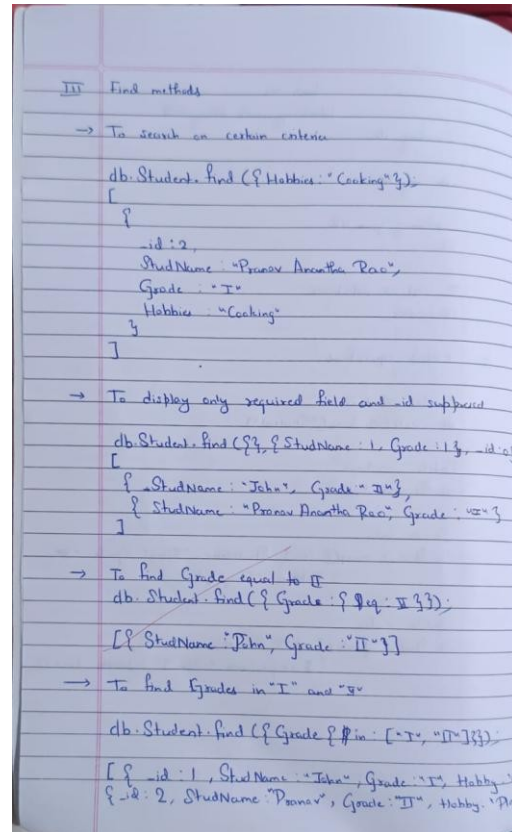 III Find methods
→ To search on certain criteria
db.Student.find({Hobbies: "Cooking"});
[
{
_id: 2,
StudName: "Pranav Anantha Rao",
Grade: "I"
Hobbies: "Cooking"
}
]
→ To display only required field and _id suppressed
db.Student.find({}, {StudName: 1, Grade: 1}, _id: 0
[
{ StudName: "John", Grade: "II"},
{ StudName: "Pranav Anantha Rao", Grade: "I"}
]
→ To find Grade equal to II
db.Student.find({ Grade: { $eq: II }});
[{ StudName: "John", Grade: "II"}]
→ To find Grades in "I" and "II"
db.Student.find({ Grade { $in: ["I", "II"]}});
[{ _id: 1, StudName: "John", Grade: "I", Hobby:
{ _id: 2, StudName: "Pranav", Grade: "II", Hobby: